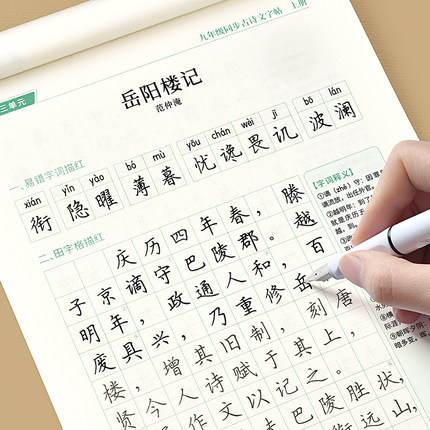 九年级同步古诗文字帖 上册
三单元
岳阳楼记
范仲淹
一、易错字词描红
xián yǐn yào bó mù yōu chán wèi jī bō lán
衔隐曜 薄暮 忧谗畏讥 波澜
二、田字格描红
庆历四年春,滕
子京谪守巴陵郡。越
明年,政通人和,百
废具兴,乃重修岳
楼,增其旧制,刻唐
贤今人诗赋于其上,
作文以记之。
巴陵胜状,
衔远山,
【字词释义】
①谪(zhé)守:因罪